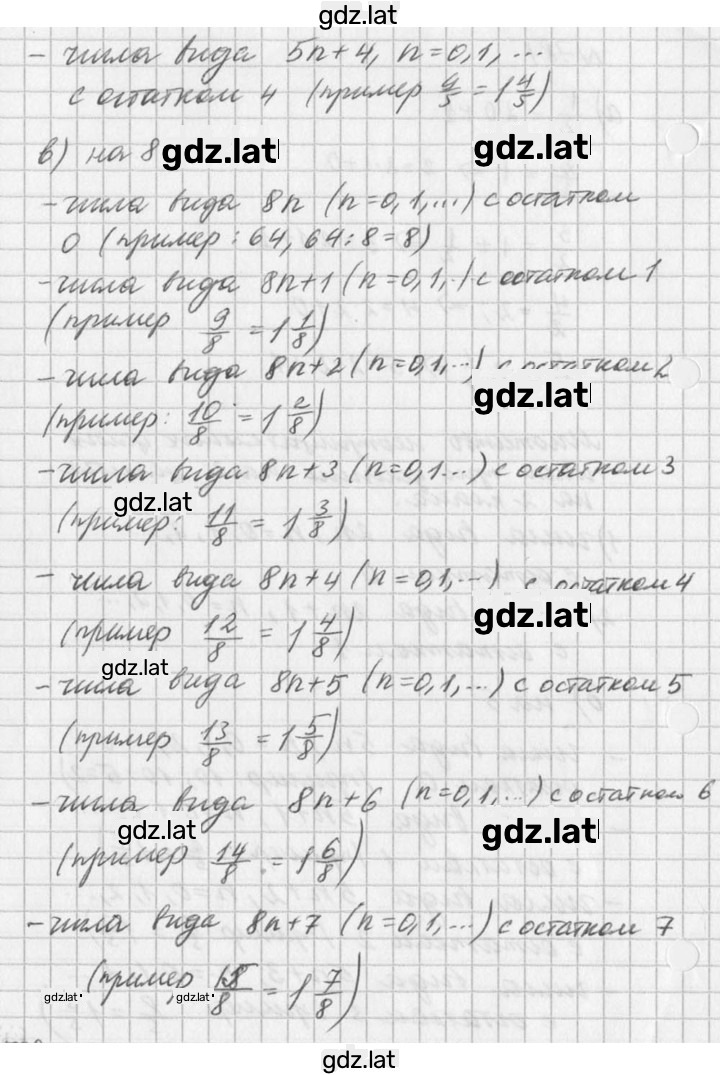 gdz.lat
- числа вида 5n+4, n=0,1,...
с остатком 4 (пример 9/5 = 1 4/5)
в) на 8 gdz.lat gdz.lat
- числа вида 8n (n=0,1,...) с остатком
0 (пример: 64, 64:8=8)
- числа вида 8n+1 (n=0,1,..) с остатком 1
(пример 9/8 = 1 1/8)
- числа вида 8n+2 (n=0,1,...) с остатком 2
gdz.lat
(пример: 10/8 = 1 2/8)
- числа вида 8n+3 (n=0,1...) с остатком 3
gdz.lat
(пример: 11/8 = 1 3/8)
- числа вида 8n+4 (n=0,1,...) с остатком 4
gdz.lat
(пример 12/8 = 1 4/8)
gdz.lat
- числа вида 8n+5 (n=0,1,...) с остатком 5
(пример 13/8 = 1 5/8)
- числа вида 8n+6 (n=0,1,...) с остатком 6
gdz.lat gdz.lat
(пример 14/8 = 1 6/8)
- числа вида 8n+7 (n=0,1,...) с остатком 7
(пример, 15/8 = 1 7/8)
gdz.lat gdz.lat
gdz.lat